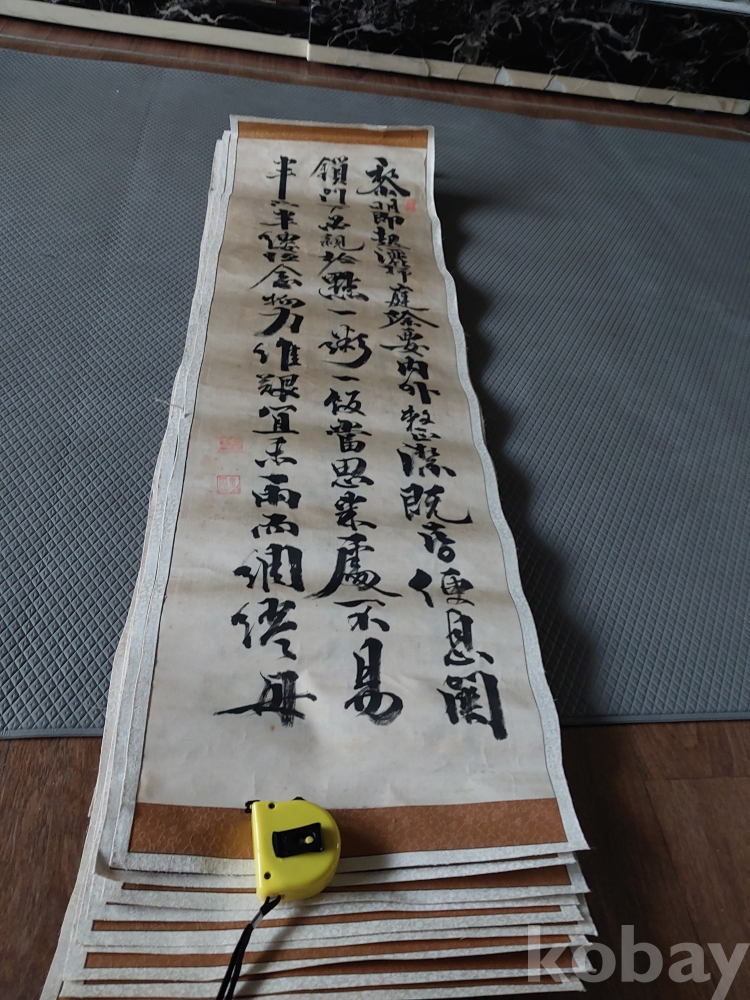 黎明即起洒掃庭除要內外整潔既昏便息關
鎖門戶必親檢點一粥一飯當思來處不易
半絲半縷恒念物力維艱宜未雨而綢繆毋
kobay